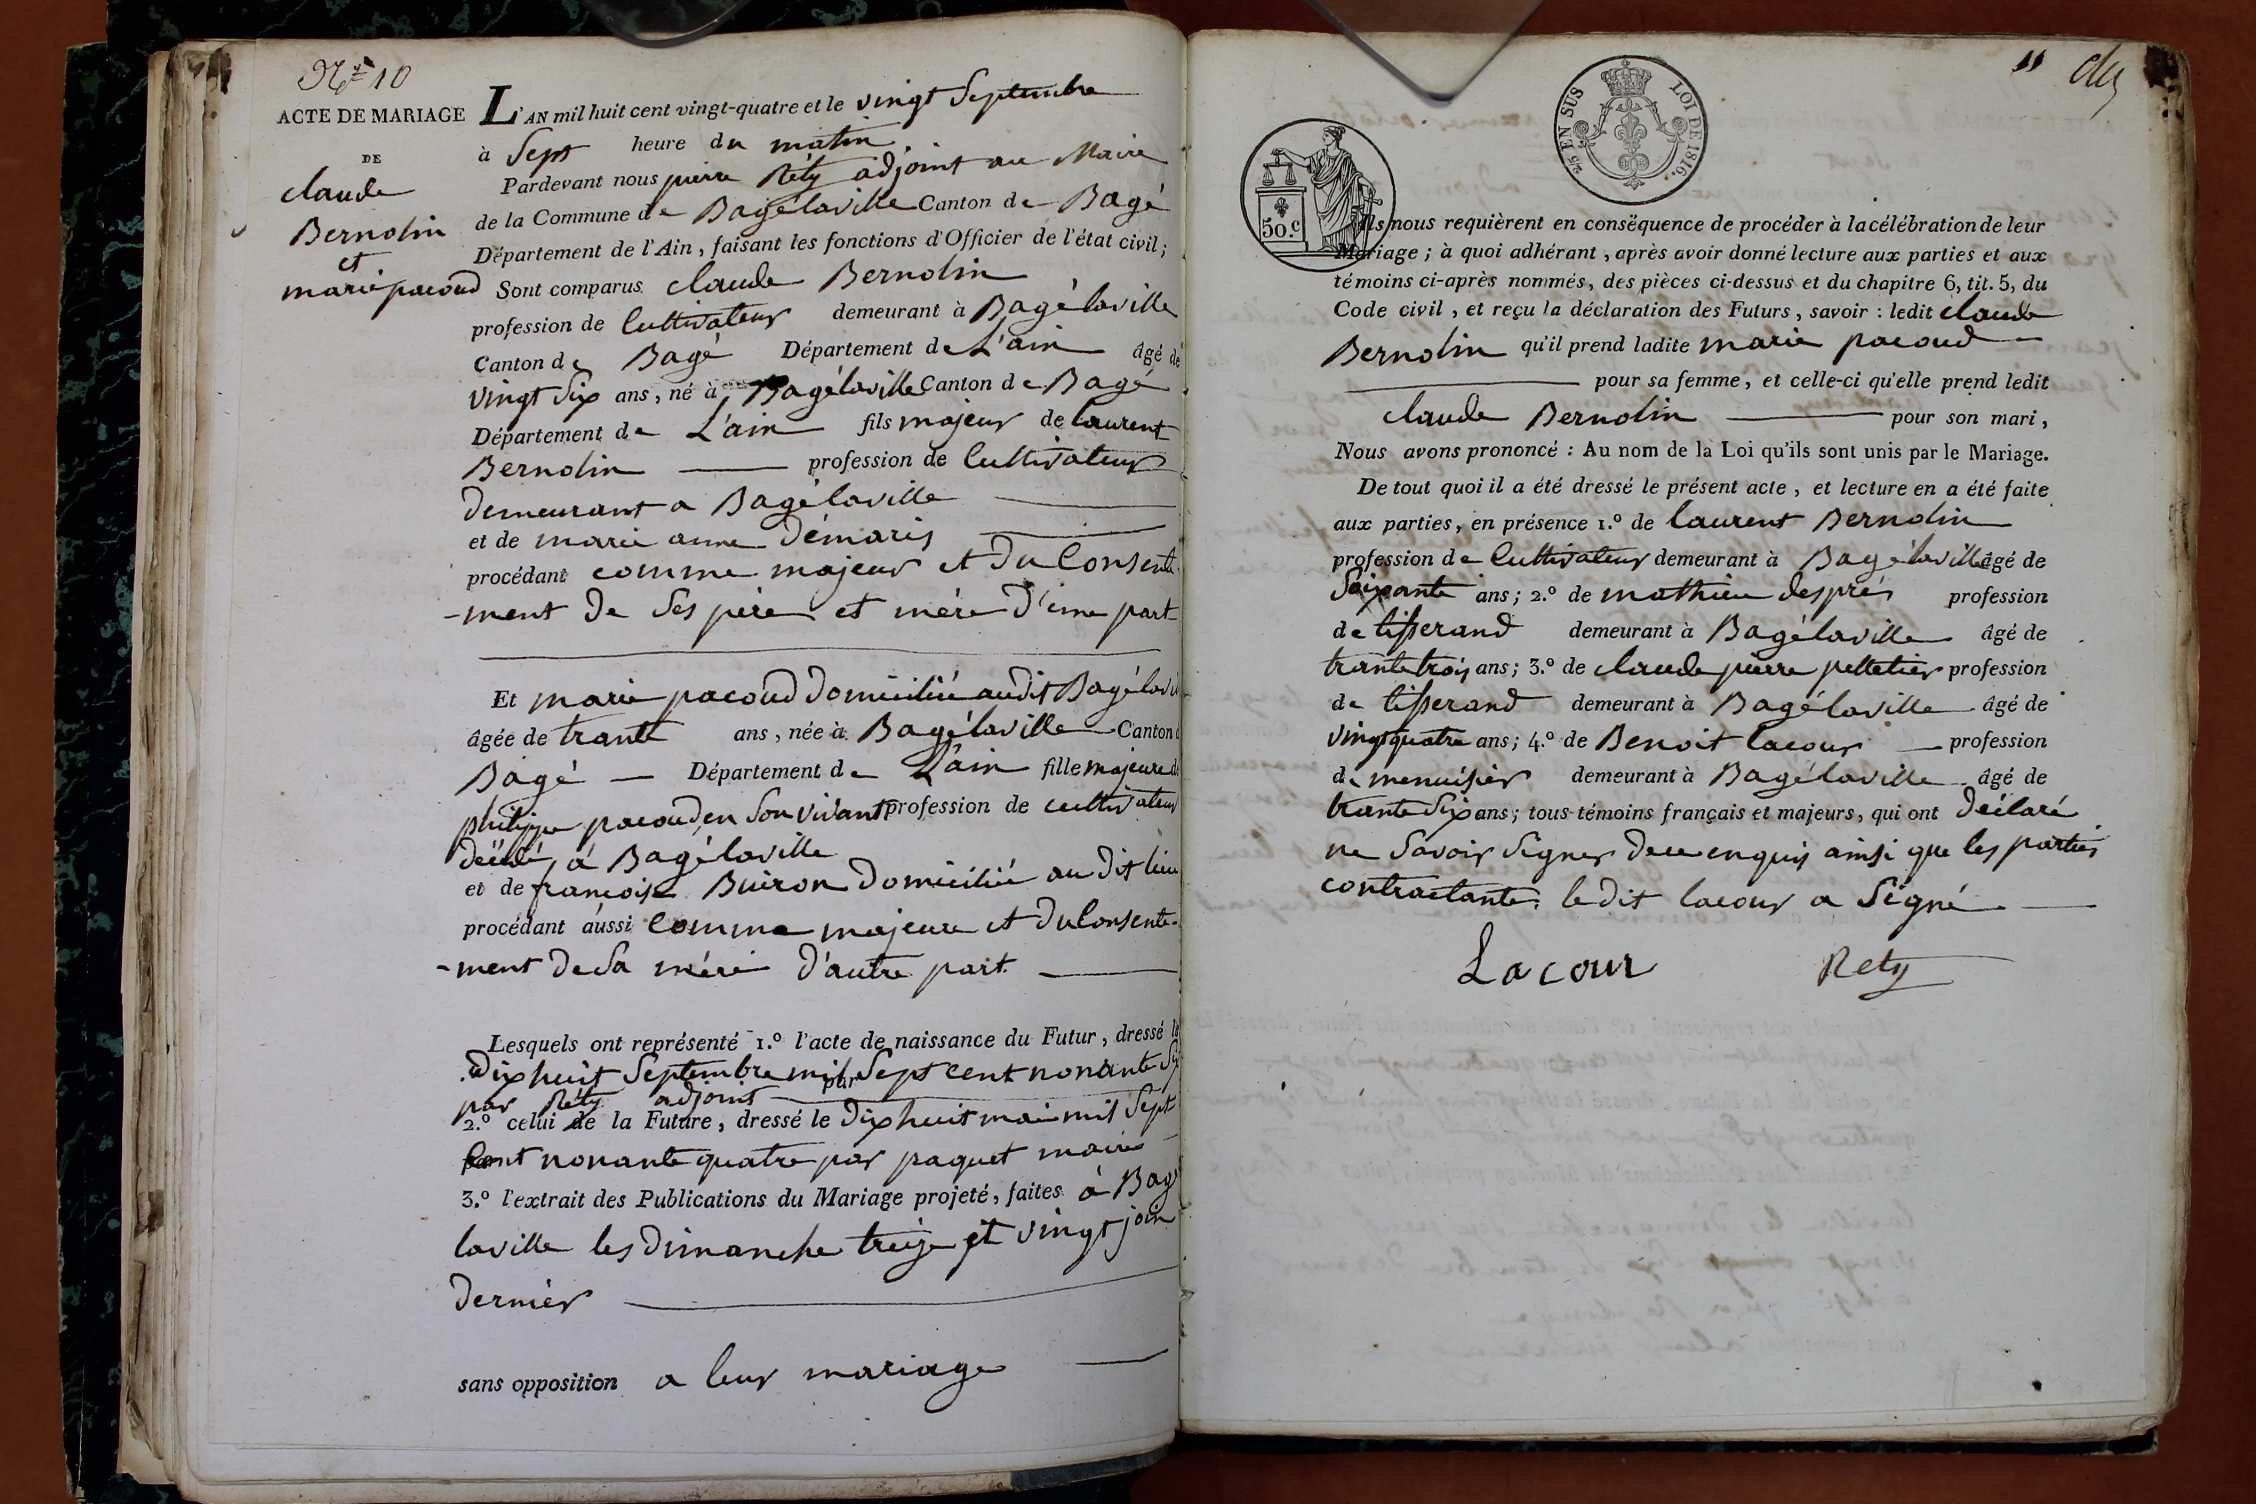 N.° 10
ACTE DE MARIAGE
DE
claude
Bernolin
et
marie pacoud
L'AN mil huit cent vingt-quatre et le vingt Septembre
à Sept heure du matin
Pardevant nous pierre Réty adjoint au Maire
de la Commune de Bagélaville Canton de Bagé
Département de l'Ain, faisant les fonctions d'Officier de l'état civil;
Sont comparus claude Bernolin
profession de Cultivateur demeurant à Bagélaville
Canton de Bagé Département de L'ain âgé de
vingt Six ans, né à Bagélaville Canton de Bagé
Département de L'ain fils majeur de laurent
Bernolin profession de Cultivateur
demeurant a Bagélaville
et de marie anne Démaris
procédant comme majeur et du Consente
-ment de Ses père et mère d'une part
Et marie pacoud domiciliée audit Bagélavil
âgée de trante ans, née à Bagélaville Canton d
Bagé Département de L'ain fille majeure de
philippe pacoud en Son vivant profession de cultivateur
décédé à Bagélaville
et de francoise Buiron domiciliée au dit lieu
procédant aussi comme majeure et du Consente-
-ment de Sa mére d'autre part
Lesquels ont représenté 1.° l'acte de naissance du Futur, dressé le
Dix huit Septembre mil Sept cent nonante Six
par
par Réty adjoint
2.° celui de la Future, dressé le Dix huit mai mil Sept
Cent nonante quatre par paquet maire
3.° l'extrait des Publications du Mariage projeté, faites à Bagé
laville les Dimanche treize et vingt join
dernier
sans opposition a leur mariage
11
25 EN SUS
LOI DE 1816.
50.c
Ils nous requièrent en conséquence de procéder à la célébration de leur
Mariage; à quoi adhérant, après avoir donné lecture aux parties et aux
témoins ci-après nommés, des pièces ci-dessus et du chapitre 6, tit. 5, du
Code civil, et reçu la déclaration des Futurs, savoir: ledit claude
Bernolin qu'il prend ladite marie pacoud
pour sa femme, et celle-ci qu'elle prend ledit
claude Bernolin pour son mari,
Nous avons prononcé: Au nom de la Loi qu'ils sont unis par le Mariage.
De tout quoi il a été dressé le présent acte, et lecture en a été faite
aux parties, en présence 1.° de laurent Bernolin
profession de Cultivateur demeurant à Bagélaville âgé de
Soixante ans; 2.° de mathieu després profession
de tisserand demeurant à Bagélaville âgé de
trante trois ans; 3.° de claude pierre pelletier profession
de tisserand demeurant à Bagélaville âgé de
vingt quatre ans; 4.° de Benoit lacour profession
de menuisier demeurant à Bagélaville âgé de
trante Six ans; tous témoins français et majeurs, qui ont déclaré
ne Savoir Signer de ce enquis ainsi que les parties
contractante. le dit lacour a Signé
Lacour Rety